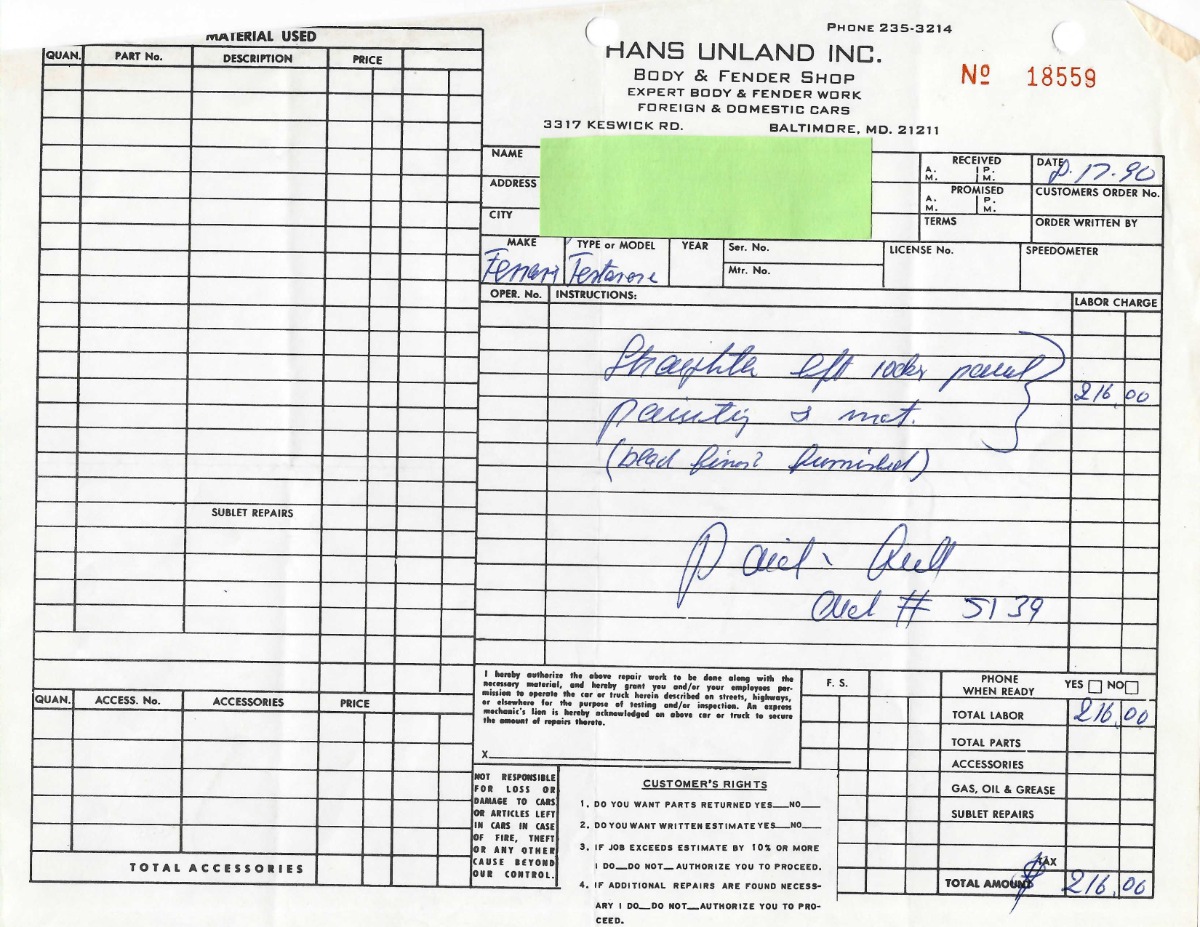 MATERIAL USED
QUAN. PART No. DESCRIPTION PRICE
SUBLET REPAIRS
QUAN. ACCESS. No. ACCESSORIES PRICE
TOTAL ACCESSORIES
PHONE 235-3214
HANS UNLAND INC.
BODY & FENDER SHOP
EXPERT BODY & FENDER WORK
FOREIGN & DOMESTIC CARS
3317 KESWICK RD. BALTIMORE, MD. 21211
No 18559
NAME
ADDRESS
CITY
RECEIVED
A. M. P. M.
PROMISED
A. M. P. M.
TERMS
DATE 17-90
CUSTOMERS ORDER No.
ORDER WRITTEN BY
MAKE TYPE or MODEL YEAR Ser. No. LICENSE No. SPEEDOMETER
Ferrari Testarosa
Mtr. No.
OPER. No. INSTRUCTIONS: LABOR CHARGE
left rocker panel
216.00
painting & mat.
furnished)
Paid
# 5139
I hereby authorize the above repair work to be done along with the
necessary material, and hereby grant you and/or your employees per-
mission to operate the car or truck herein described on streets, highways,
or elsewhere for the purpose of testing and/or inspection. An express
mechanic's lien is hereby acknowledged on above car or truck to secure
the amount of repairs thereto.
X
NOT RESPONSIBLE
FOR LOSS OR
DAMAGE TO CARS
OR ARTICLES LEFT
IN CARS IN CASE
OF FIRE, THEFT
OR ANY OTHER
CAUSE BEYOND
OUR CONTROL.
CUSTOMER'S RIGHTS
1. DO YOU WANT PARTS RETURNED YES__NO__
2. DO YOU WANT WRITTEN ESTIMATE YES__NO__
3. IF JOB EXCEEDS ESTIMATE BY 10% OR MORE
I DO__DO NOT__AUTHORIZE YOU TO PROCEED.
4. IF ADDITIONAL REPAIRS ARE FOUND NECESS-
ARY I DO__DO NOT__AUTHORIZE YOU TO PRO-
CEED.
F. S.
PHONE
WHEN READY YES NO
TOTAL LABOR 216.00
TOTAL PARTS
ACCESSORIES
GAS, OIL & GREASE
SUBLET REPAIRS
TAX
TOTAL AMOUNT $ 216.00